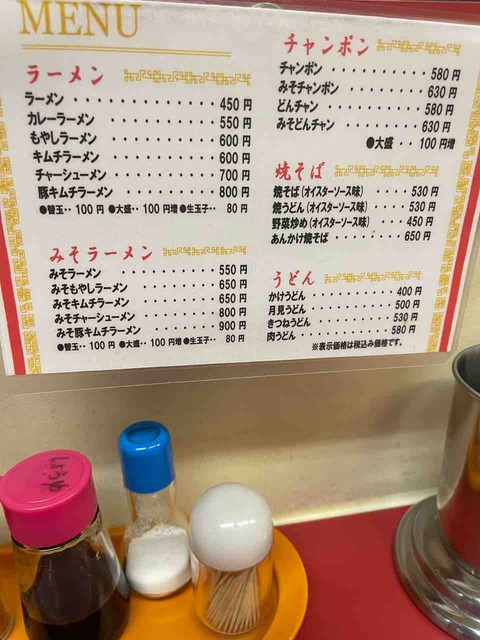 MENU
ラーメン
ラーメン・・・・・・・・・・・450円
カレーラーメン・・・・・・・・550円
もやしラーメン・・・・・・・・600円
キムチラーメン・・・・・・・・600円
チャーシューメン・・・・・・・700円
豚キムチラーメン・・・・・・・800円
●替玉・・100円 ●大盛・・100円増 ●生玉子・・80円
みそラーメン
みそラーメン・・・・・・・・・550円
みそもやしラーメン・・・・・・650円
みそキムチラーメン・・・・・・650円
みそチャーシューメン・・・・・800円
みそ豚キムチラーメン・・・・・900円
●替玉・・100円 ●大盛・・100円増 ●生玉子・・80円
チャンポン
チャンポン・・・・・・・・・・580円
みそチャンポン・・・・・・・・630円
どんチャン・・・・・・・・・・580円
みそどんチャン・・・・・・・・630円
●大盛・・100円増
焼そば
焼そば（オイスターソース味）・・・530円
焼うどん（オイスターソース味）・・・530円
野菜炒め（オイスターソース味）・・・450円
あんかけ焼そば・・・・・・・・650円
うどん
かけうどん・・・・・・・・・・400円
月見うどん・・・・・・・・・・500円
きつねうどん・・・・・・・・・530円
肉うどん・・・・・・・・・・・580円
※表示価格は税込み価格です。
しょうゆ